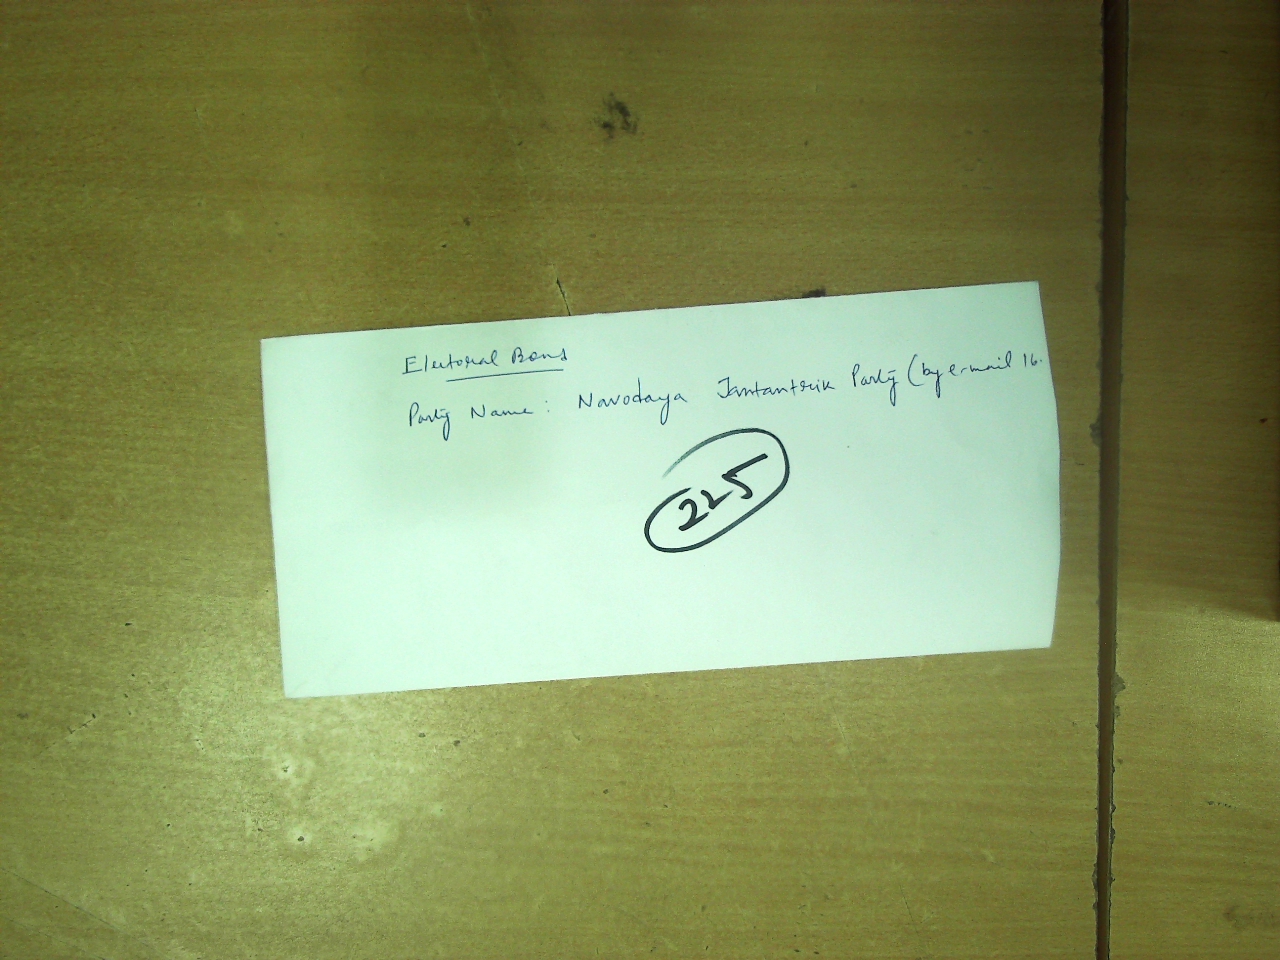 Electoral Bond
Party Name : Navodaya Jantantrik Party (by e-mail 16.
225